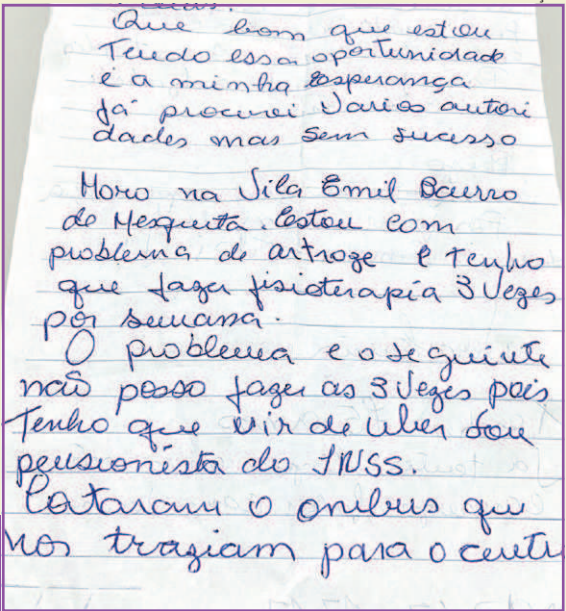 Que bom que estou
Tendo essa oportunidade
e a minha esperança
já procurei varias autori
dades mas sem sucesso
Moro na Vila Emil Bairro
de Mesquita. Estou com
problema de artroze e Tenho
que fazer fisioterapia 3 vezes
por semana.
O problema e o seguinte
não posso fazer as 3 vezes pois
Tenho que vir de uber sou
pensionista do INSS.
Cataram o onibus que
nos traziam para o cent